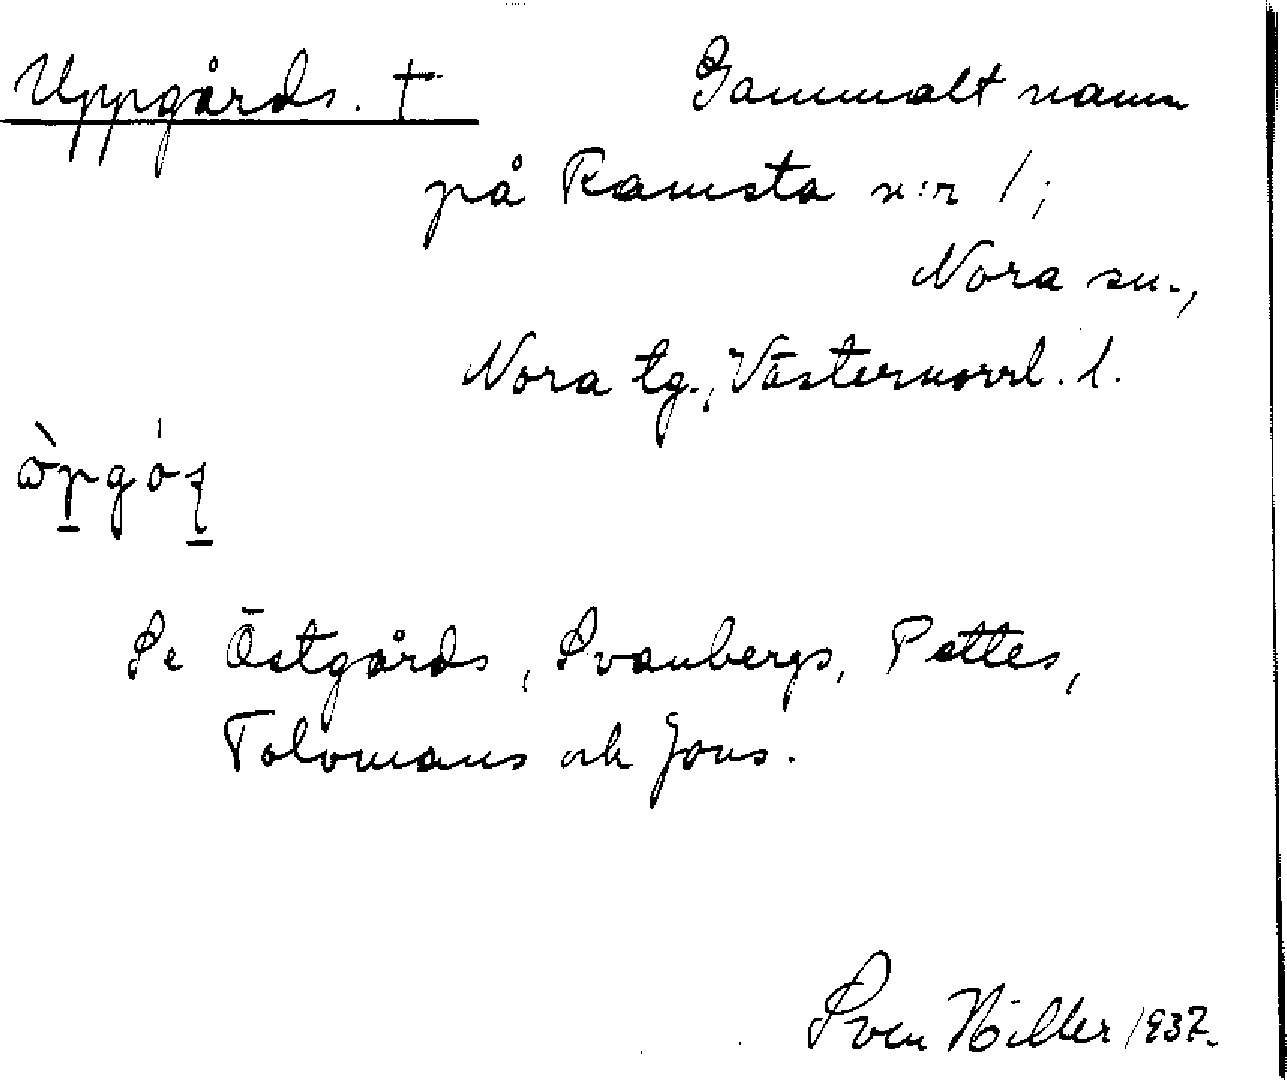 Uppgårds. † Gammalt namn
på Ramsta n:r 1;
Nora sn.,
Nora tg., Västernorrl. l.
Se Östgårds, Svanbergs, Pettes,
Tolvmans och Jons.
Sven Hiller 1937.